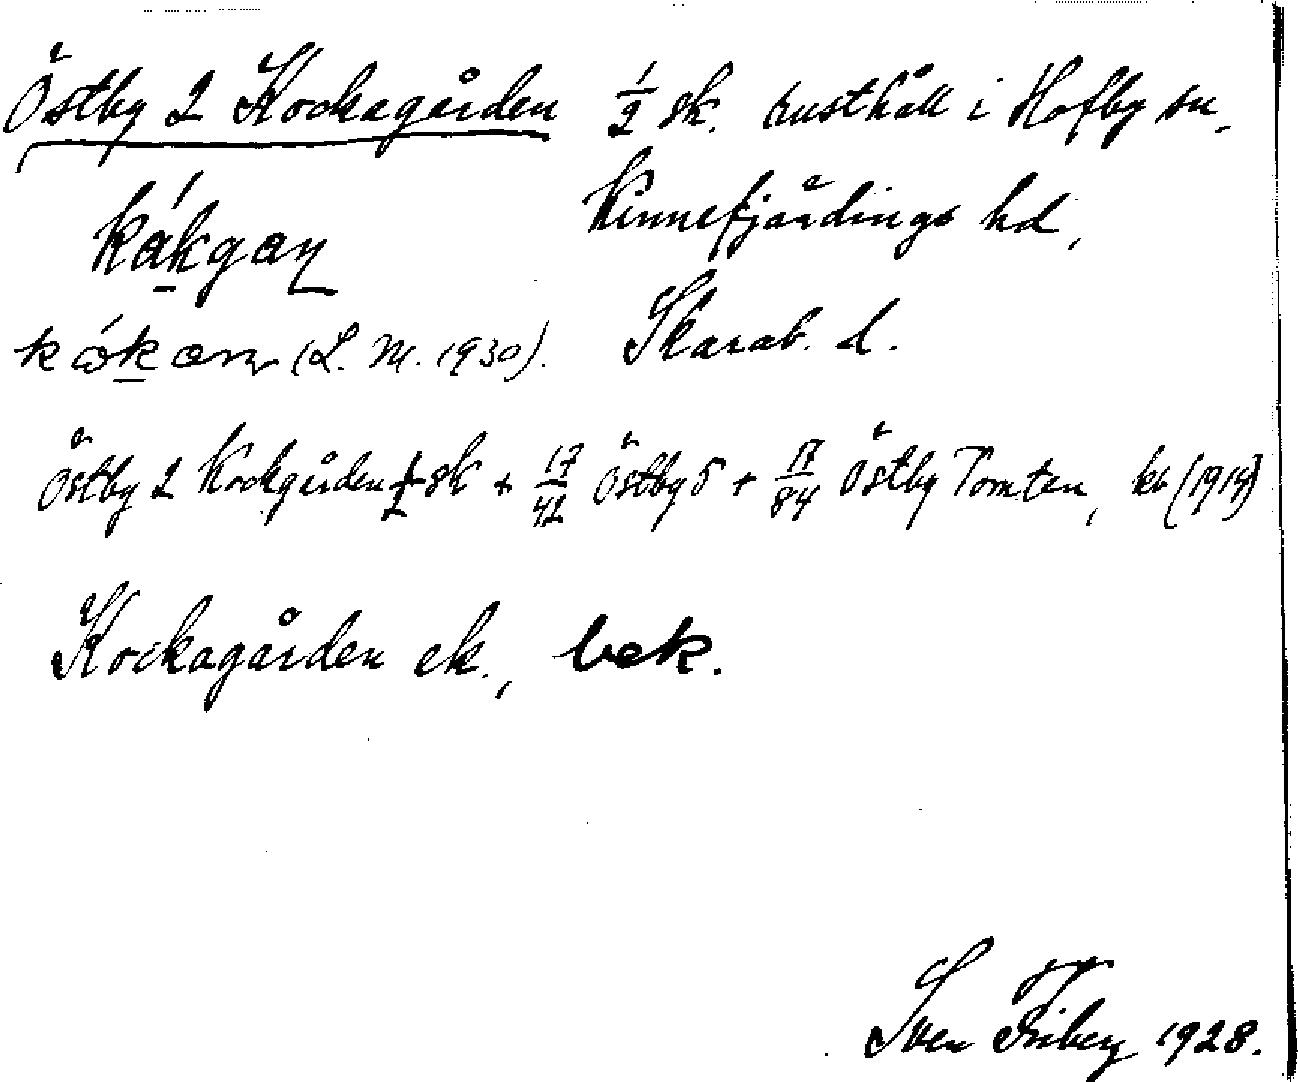 Östby 2 Kockagården ½ sk. rusthåll i Hofby sn.
kákgaṇ Kinnefjärdings hd,
kókan (L. M. 1930). Skarab. l.
Östby 2 Kockgården ½ sk + 17/42 Östby 5 + 17/84 Östby Tomten, kb (1914)
Kockagården ek., bek.
Sven Friberg 1928.